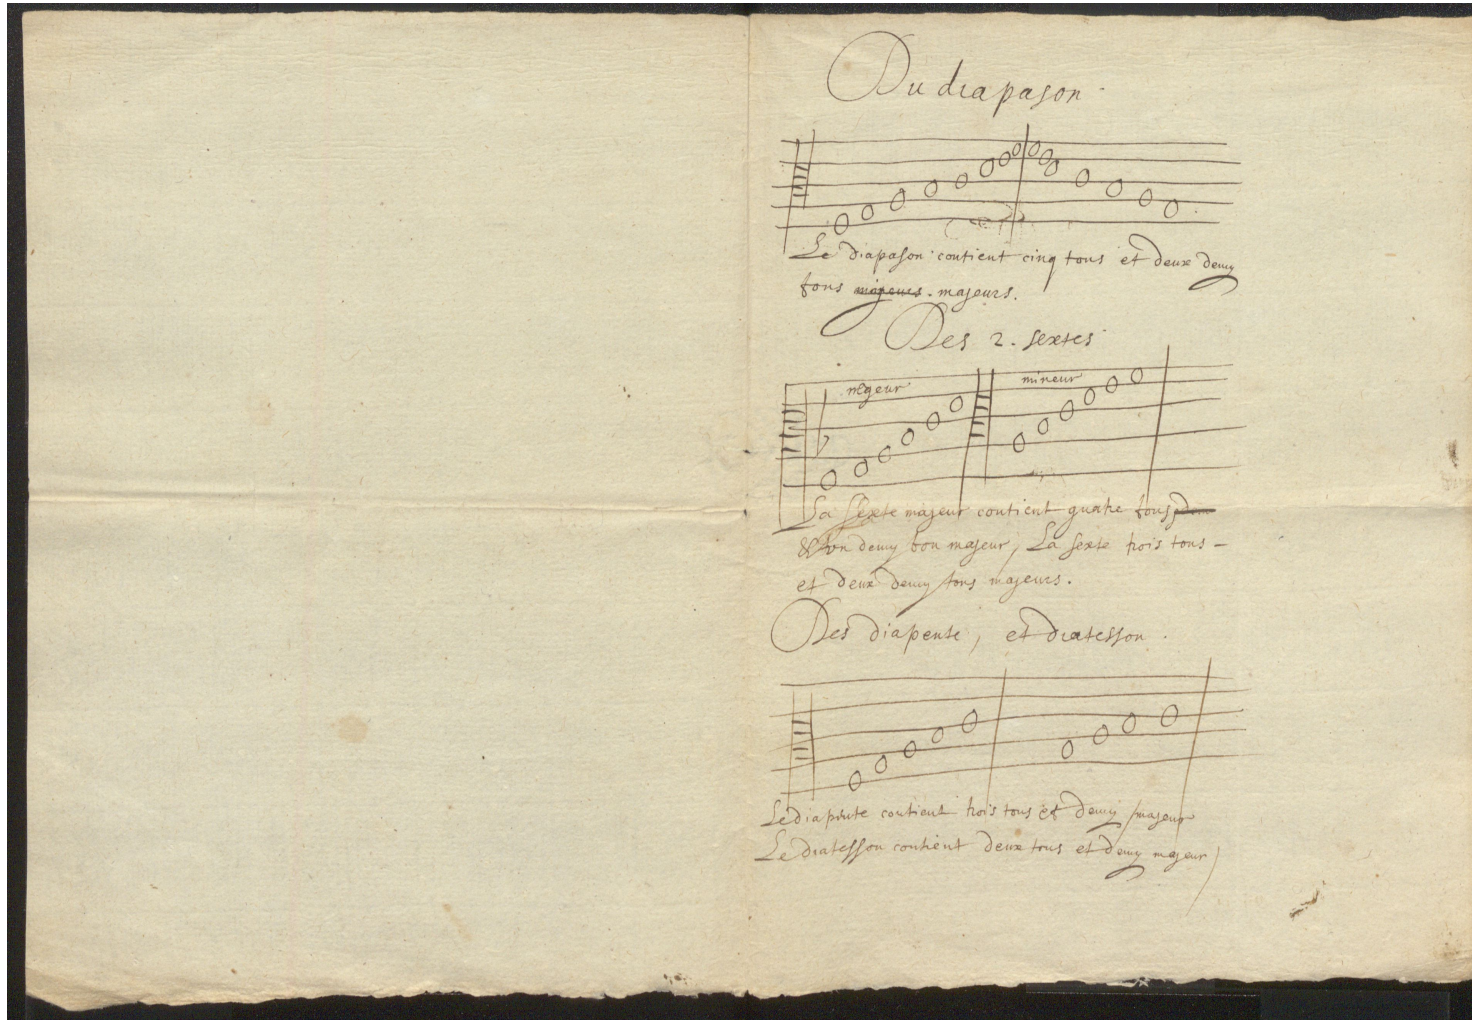 Du diapason.
Le diapason contient cinq tons et deux demy
tons majeurs. majeurs.
Des 2. sextes
majeur mineur
La sexte majeur contient quatre tons
& un demy ton majeur, La sexte trois tons -
et deux demy tons majeurs.
Des diapente, et diatesson.
Le diapente contient trois tons et demy majeur
Le diatesson contient deux tons et demy majeur,